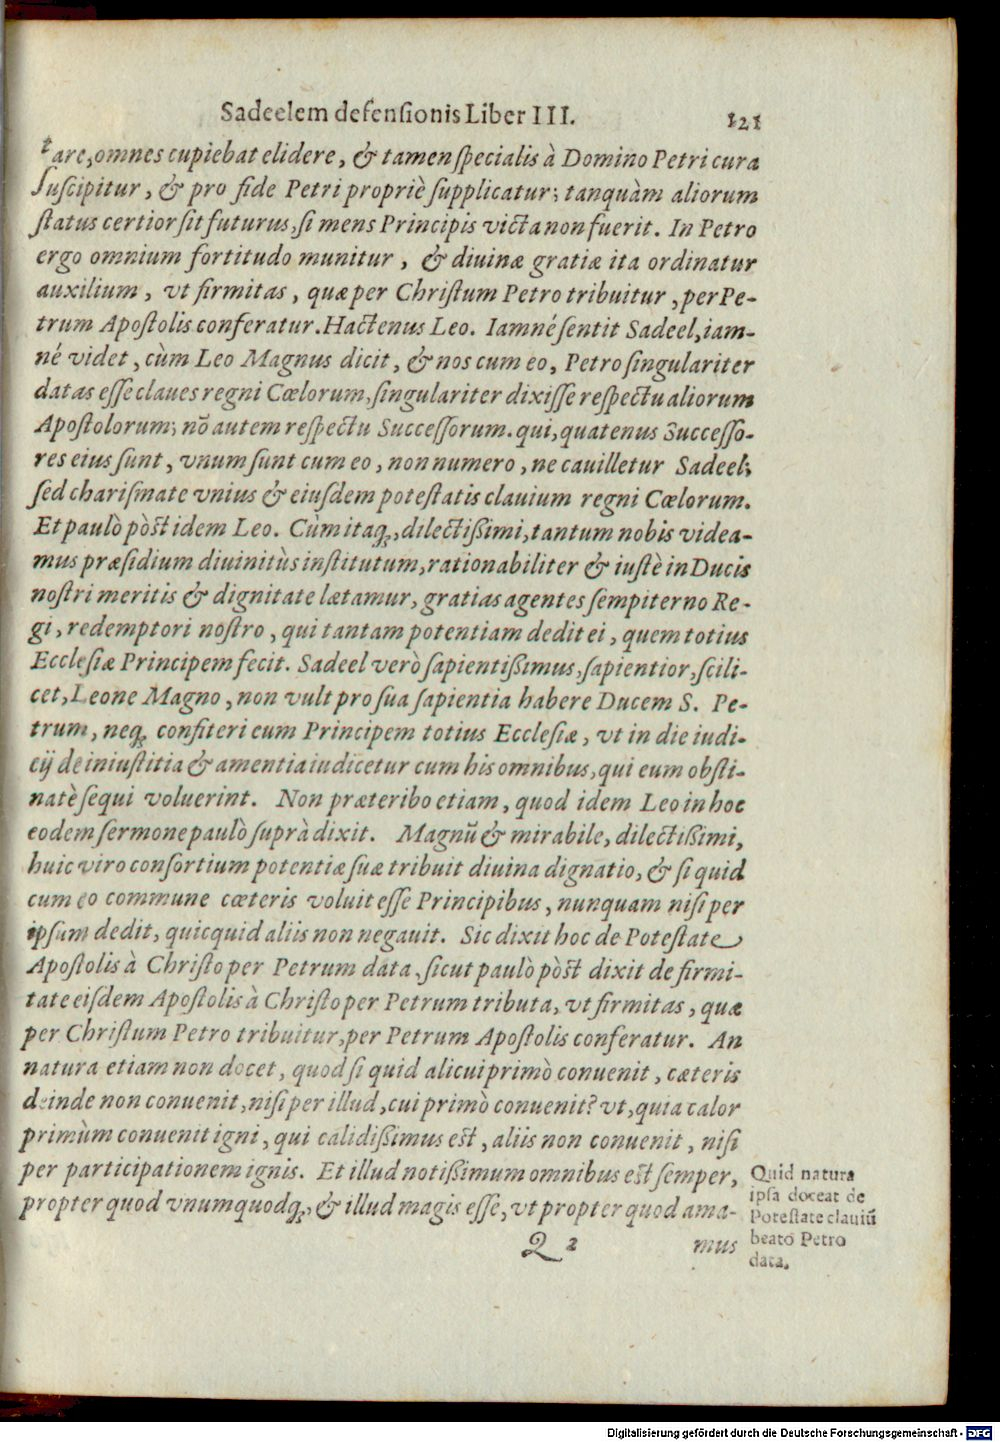 Sadeelem defensionis Liber III. 121
tare, omnes cupiebat elidere, & tamen specialis à Domino Petri cura
suscipitur, & pro fide Petri propriè supplicatur; tanquàm aliorum
status certior sit futurus, si mens Principis victa non fuerit. In Petro
ergo omnium fortitudo munitur, & diuinæ gratiæ ita ordinatur
auxilium, vt firmitas, quæ per Christum Petro tribuitur, per Pe-
trum Apostolis conferatur. Hactenus Leo. Iamné sentit Sadeel, iam-
né videt, cùm Leo Magnus dicit, & nos cum eo, Petro singulariter
datas esse claues regni Cœlorum, singulariter dixisse respectu aliorum
Apostolorum; nõ autem respectu Successorum. qui, quatenus Successo-
res eius sunt, vnum sunt cum eo, non numero, ne cauilletur Sadeel;
sed charismate vnius & eiusdem potestatis clauium regni Cœlorum.
Et paulò pòst idem Leo. Cùm itaq;, dilectißimi, tantum nobis videa-
mus præsidium diuinitùs institutum, rationabiliter & iustè in Ducis
nostri meritis & dignitate lætamur, gratias agentes sempiterno Re-
gi, redemptori nostro, qui tantam potentiam dedit ei, quem totius
Ecclesiæ Principem fecit. Sadeel verò sapientißimus, sapientior, scili-
cet, Leone Magno, non vult pro sua sapientia habere Ducem S. Pe-
trum, neq; confiteri eum Principem totius Ecclesiæ, vt in die iudi-
cij de iniustitia & amentia iudicetur cum his omnibus, qui eum obsti-
natè sequi voluerint. Non præteribo etiam, quod idem Leo in hoc
eodem sermone paulò suprà dixit. Magnũ & mirabile, dilectißimi,
huic viro consortium potentiæ suæ tribuit diuina dignatio, & si quid
cum eo commune cæteris voluit esse Principibus, nunquam nisi per
ipsum dedit, quicquid aliis non negauit. Sic dixit hoc de Potestate
Apostolis à Christo per Petrum data, sicut paulò pòst dixit de firmi-
tate eisdem Apostolis à Christo per Petrum tributa, vt firmitas, quæ
per Christum Petro tribuitur, per Petrum Apostolis conferatur. An
natura etiam non docet, quod si quid alicui primò conuenit, cæteris
deinde non conuenit, nisi per illud, cui primò conuenit? vt, quia calor
primùm conuenit igni, qui calidißimus est, aliis non conuenit, nisi
per participationem ignis. Et illud notißimum omnibus est semper,
propter quod vnumquodq;, & illud magis esse, vt propter quod ama-
Q 2 mus
Quid natura
ipsa doceat de
Potestate clauiũ
beato Petro
data.
Digitalisierung gefördert durch die Deutsche Forschungsgemeinschaft - DFG